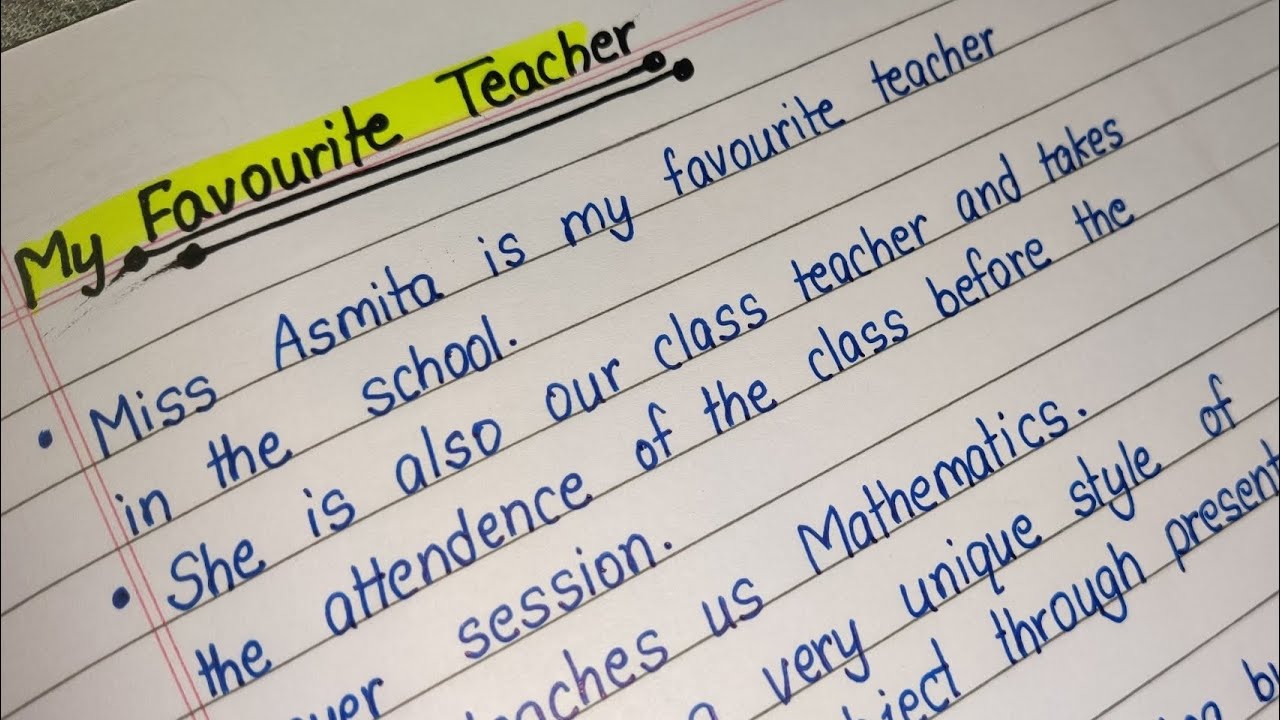 My Favourite Teacher
• Miss Asmita is my favourite teacher
in the school.
• She is also our class teacher and takes
the attendence of the class before the
session.
us Mathematics.
very unique style of
through